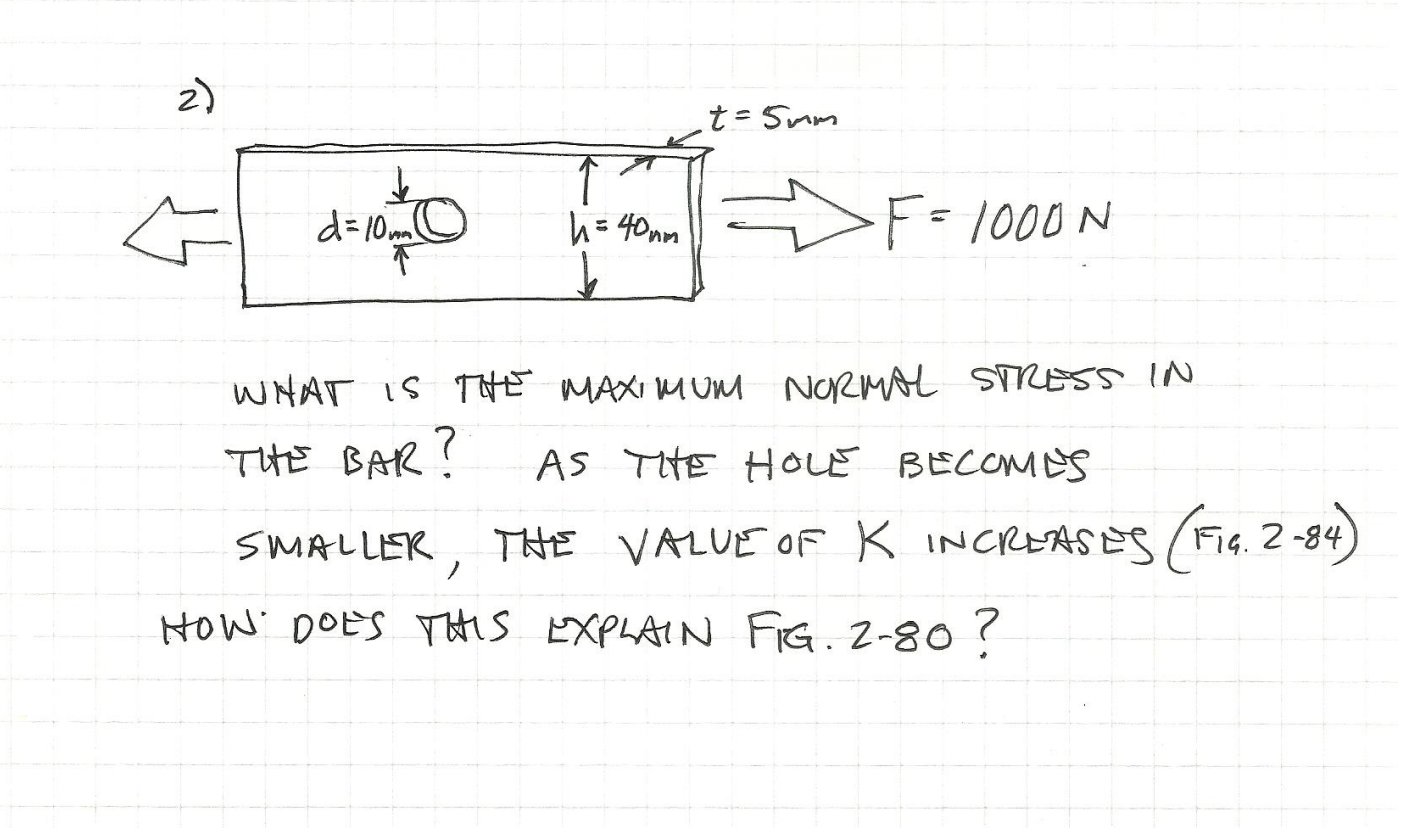 2)
t = 5mm
d=10mm
h = 40mm
F = 1000 N
WHAT IS THE MAXIMUM NORMAL STRESS IN
THE BAR? AS THE HOLE BECOMES
SMALLER, THE VALUE OF K INCREASES (FIG. 2-84)
HOW DOES THIS EXPLAIN FIG. 2-80?